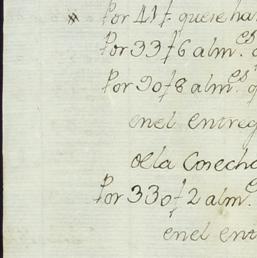 Por 41 f. que se ha
Por 33 f 6 alm.es
Por 90 f 8 alm.es q
en el entreg
de la Cosecha
Por 330 f 2 alm.
en el ent